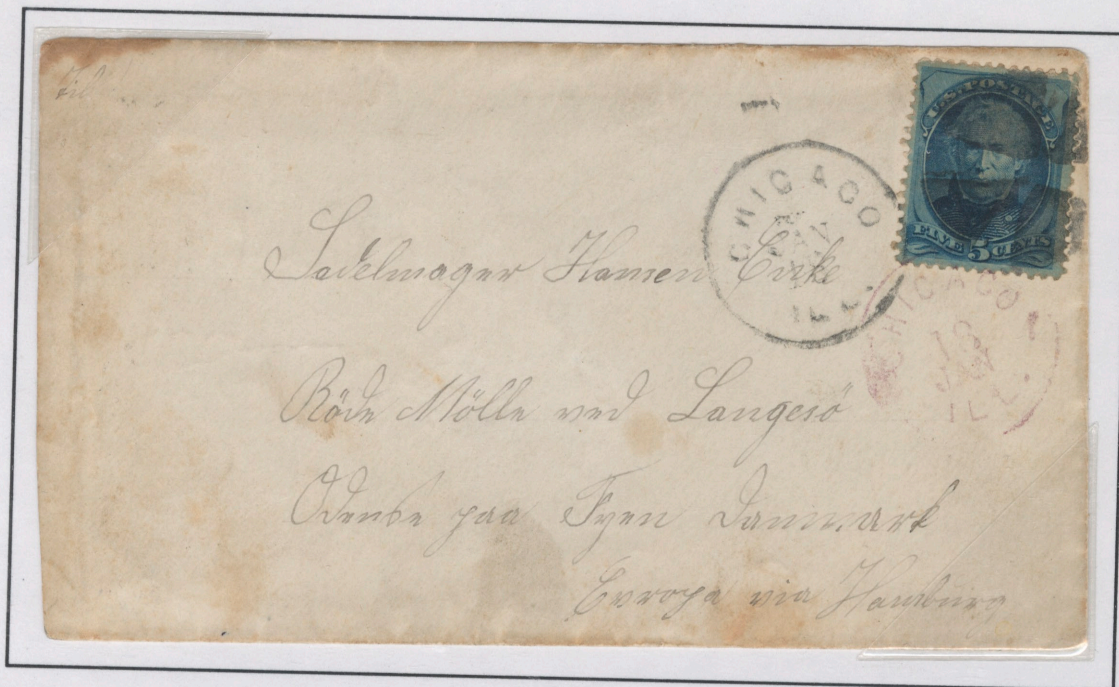 Til
U.S. POSTAGE
FIVE 5 CENTS
CHICAGO
JAN
ILL.
CHICAGO
18
JAN
ILL.
Sadelmager Hansen Enke
Röde Mölle ved Langesö
Odense paa Fyen Danmark
Evropa via Hamburg